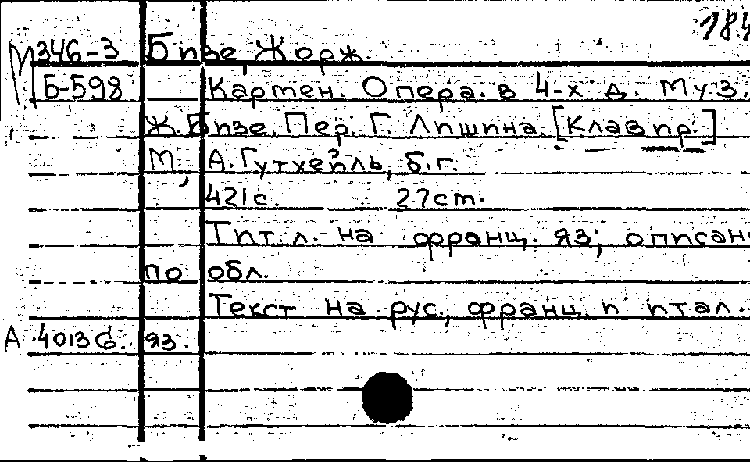 184
М346-3 Бизе, Жорж.
Б-598 Кармен. Опера в 4-х д. Муз.
Ж. Бизе. Пер. Г. Лишина. [Клавир.]
М., А. Гутхейль, б.г.
421с. 27см.
Тит. л. на франц. яз; описан
по обл.
Текст на рус., франц. и итал.
А 4013 б. яз.